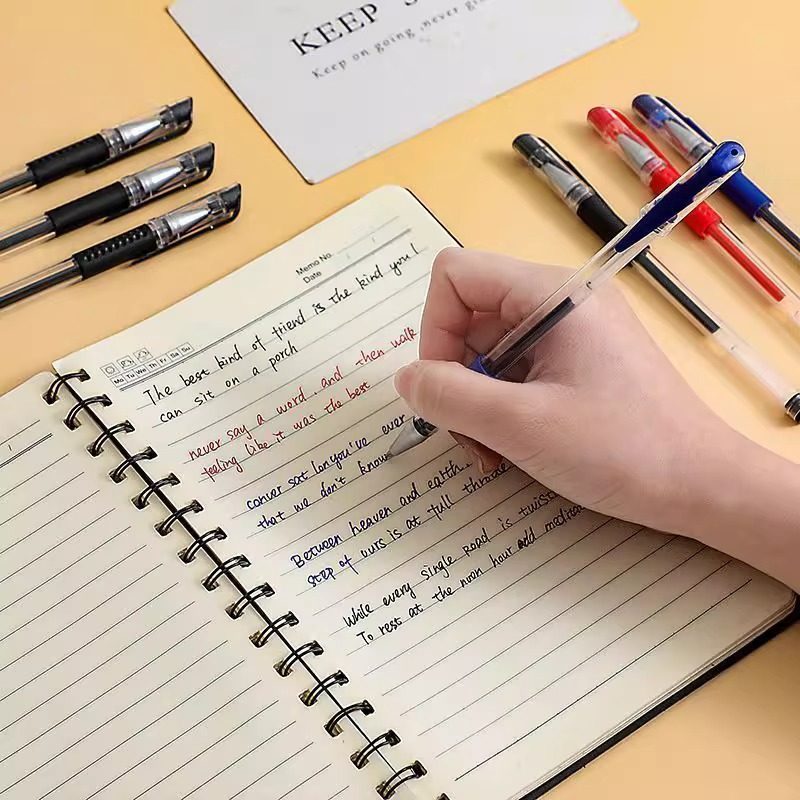 KEEP
Keep on going never gi
Memo No.
Date / /
Mo Tu We Th Fr Sa Su
The best kind of friend is the kind you l
can sit on a porch
never say a word, and then walk
feeling like it was the best
conver sat lonyou've ever
that we don't know
Between heaven and earth
step of ours is at full throttle
While every single road is twist
To rest at the noon hour